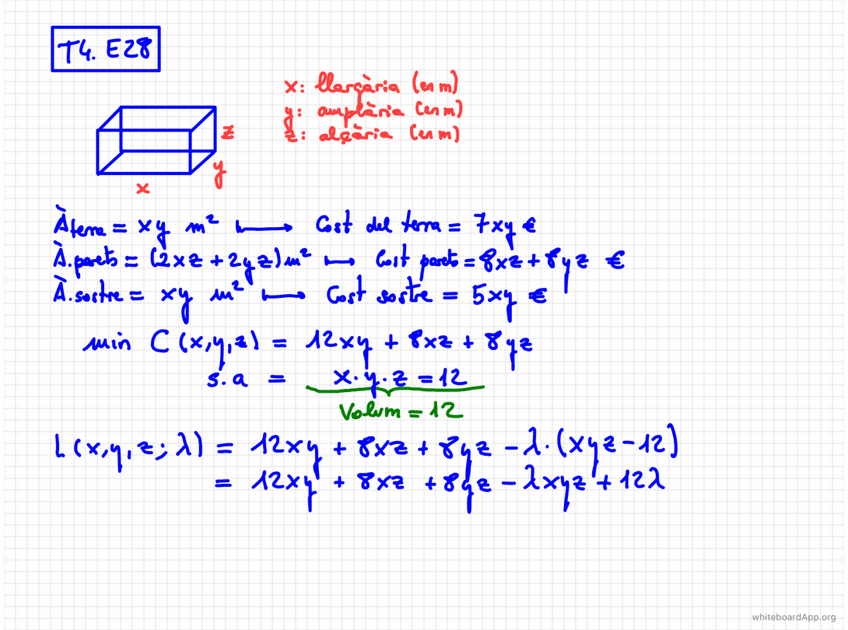 T4. E28
x: llargària (en m)
y: amplària (en m)
z: alçària (en m)
z
y
x
À terra = xy m² ⟼ Cost del terra = 7xy €
À. parets = (2xz + 2yz) m² ⟼ Cost parets = 8xz + 8yz €
À. sostre = xy m² ⟼ Cost sostre = 5xy €
min C(x,y,z) = 12xy + 8xz + 8yz
s.a = x·y·z = 12
Volum = 12
L(x,y,z;λ) = 12xy + 8xz + 8yz − λ·(xyz−12)
= 12xy + 8xz + 8yz − λxyz + 12λ
whiteboardApp.org